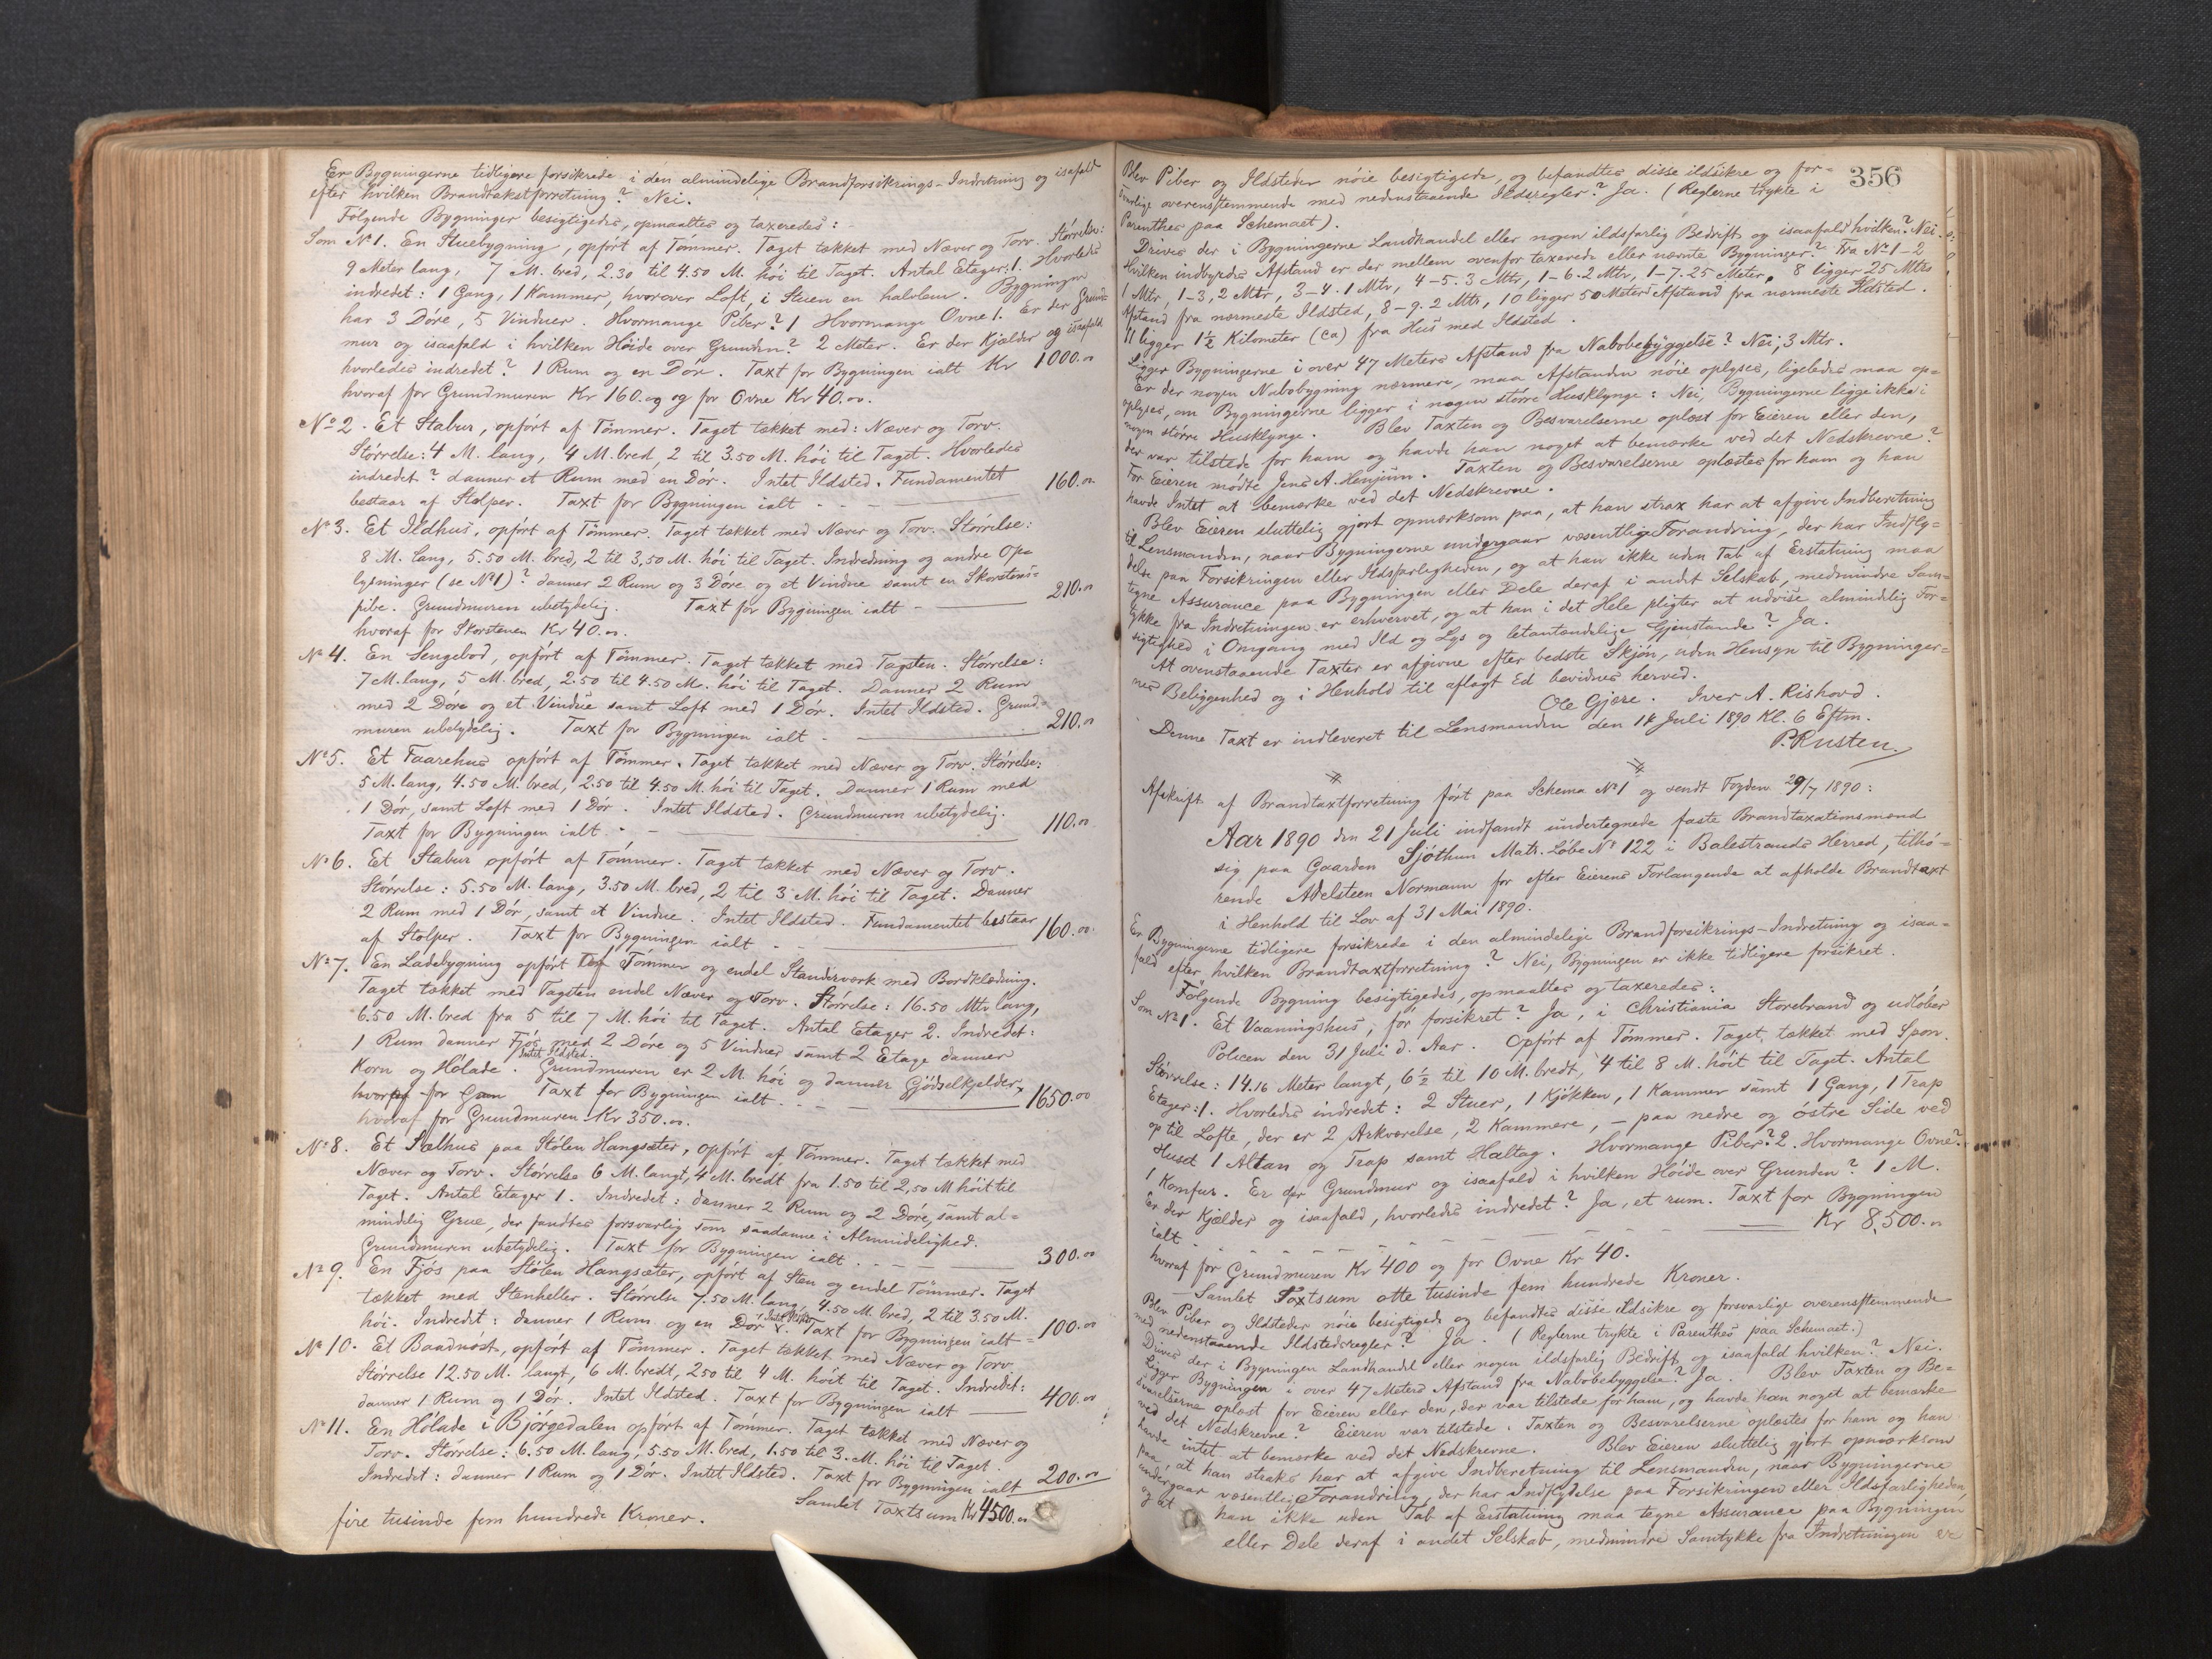 Er Bygningerne tidligere forsikrede i den almindelige Brandforsikrings-Indretning og isafald
efter hvilken Brandtakstforretning? Nei.
Følgende Bygninger besigtigedes, opmaaltes og taxeredes:
Som No 1. En Stuebygning, opført af Tømmer. Taget tækket med Næver og Torv. Størrelse:
9 Meter lang, 7 M. bred, 2.30 til 4.50 M. høi til Taget. Antal Etager: 1. Hvorledes
indredet: 1 Gang, 1 Kammer, hvorover Loft, i Stuen en halvlem. Bygningen
har 3 Døre, 5 Vinduer. Hvormange Piber? 1 Hvormange Ovne 1. Er der Grund-
mur og isaafald i hvilken Høide over Grunden? 2 Meter. Er der Kjælder og isaafald
hvorledes indredet? 1 Rum og en Dør. Taxt for Bygningen ialt Kr 1000.00
hvoraf for Grundmuren Kr 160.00 og for Ovne Kr 40.00.
No 2. Et Stabur, opført af Tømmer. Taget tækket med: Næver og Torv.
Størrelse: 4 M. lang, 4 M. bred, 2 til 3.50 M. høi til Taget. Hvorledes
indredet? danner et Rum med en Dør. Intet Ildsted. Fundamentet
bestaar af Stolper. Taxt for Bygningen ialt - - 160.00
No 3. Et Ildhus, opført af Tømmer. Taget tækket med Næver og Torv. Størrelse:
8 M. lang, 5.50 M. bred, 2 til 3,50 M. høi til Taget. Indredning og andre Op=
lysninger (se No 1)? danner 2 Rum og 3 Døre og et Vindue samt en Skorstens=
pibe. Grundmuren ubetydelig. Taxt for Bygningen ialt - 210.00
hvoraf for Skorstenen Kr 40.00.
No 4. En Sengebod, opført af Tømmer. Taget tækket med Tagsten. Størrelse:
7 M. lang, 5 M. bred, 2.50 til 4.50 M. høi til Taget. Danner 2 Rum
med 2 Døre og et Vindue samt Loft med 1 Dør. Intet Ildsted. Grund-
muren ubetydelig. Taxt for Bygningen ialt - 210.00
No 5. Et Faarehus opført af Tømmer. Taget tækket med Næver og Torv. Størrelse:
5 M. lang, 4.50 M. bred, 2.50 til 4.50 M. høi til Taget. Danner 1 Rum med
1 Dør, samt Loft med 1 Dør. Intet Ildsted. Grundmuren ubetydelig.
Taxt for Bygningen ialt - - 110.00
No 6. Et Stabur opført af Tømmer. Taget tækket med Næver og Torv.
Størrelse: 5.50 M. lang, 3.50 M. bred, 2 til 3 M. høi til Taget. Danner
2 Rum med 1 Dør, samt et Vindue. Intet Ildsted. Fundamentet bestaar
af Stolper. Taxt for Bygningen ialt - - 160.00
No 7. En Ladebygning opført af Tømmer og endel Standerværk med Bordklædning.
Taget tækket med Tagsten endel Næver og Torv. Størrelse: 16.50 Mtr lang,
6.50 M. bred fra 5 til 7 M. høi til Taget. Antal Etager 2. Indredet:
1 Rum danner Fjøs med 2 Døre og 5 Vinduer samt 2 Etage danner
Korn og Hølade. Intet Ildsted. Grundmuren er 2 M. høi og danner Gjødselkjelder,
Taxt for Bygningen ialt - - 1650.00
hvoraf for Grundmuren Kr 350.00.
No 8. Et Sælhus paa Stølen Hangsæter, opført af Tømmer. Taget tækket med
Næver og Torv. Størrelse 6 M. langt, 4 M. bredt fra 1.50 til 2,50 M høit til
Taget. Antal Etager 1. Indredet: danner 2 Rum og 2 Døre, samt al=
mindelig Grue, der fandtes forsvarlig som saadanne i Almindelighed.
Grundmuren ubetydelig. Taxt for Bygningen ialt - - 300.00
No 9. En Fjøs paa Stølen Hangsæter, opført af Sten og endel Tømmer. Taget
tækket med Stenheller. Størrelse 7.50 M. lang, 4.50 M. bred, 2 til 3.50 M.
høi. Indredet: danner 1 Rum og en Dør. Intet Ildsted. Taxt for Bygningen ialt - 100.00
No 10. Et Baadnøst, opført af Tømmer. Taget tækket med Næver og Torv
Størrelse 12.50 M. langt, 6 M. bredt, 2.50 til 4 M. høit til Taget. Indredet:
danner 1 Rum og 1 Dør. Intet Ildsted. Taxt for Bygningen ialt 400.00
No 11. En Hølade i Bjørgedalen opført af Tømmer. Taget tækket med Næver og
Torv. Størrelse: 6.50 M. lang, 5.50 M. bred, 1.50 til 3. M. høi til Taget.
Indredet: danner 1 Rum og 1 Dør. Intet Ildsted. Taxt for Bygningen ialt 200.00
Samlet Taxtsum Kr 4500.00
fire tusinde fem hundrede Kroner.
356
Blev Piber og Ildsteder nøie besigtigede, og befandtes disse ildsikre og for=
svarlige overensstemmende med nedenstaaende Ildsregler? Ja. (Reglerne trykte i
Parenthes paa Schemaet).
Drives der i Bygningerne Landhandel eller nogen ildsfarlig Bedrift og isaafald hvilken? Nei.
Hvilken indbyrdes Afstand er der mellem ovenfor taxerede eller nævnte Bygninger? Fra No 1-2
1 Mtr, 1-3, 2 Mtr, 3-4. 1 Mtr, 4-5. 3 Mtr, 1-6. 2 Mtr, 1-7. 25 Meter, 8 ligger 25 Mtrs
Afstand fra nærmeste Ildsted, 8-9. 2 Mtr, 10 ligger 50 Meters Afstand fra nærmeste Ildsted.
11 ligger 1½ Kilometer (ca) fra Hus med Ildsted.
Ligger Bygningerne i over 47 Meters Afstand fra Nabobebyggelse? Nei; 3 Mtr.
Er der nogen Nabobygning nærmere, maa Afstanden nøie oplyses, ligeledes maa op=
lyses, om Bygningerne ligger i nogen større Husklynge: Nei, Bygningerne ligge ikke i
nogen større Husklynge. Blev Taxten og Besvarelserne oplæst for Eieren eller den,
der var tilstede for ham og havde han noget at bemærke ved det Nedskrevne?
For Eieren mødte Jens A. Henjum. Taxten og Besvarelserne oplæstes for ham og han
havde Intet at bemærke ved det Nedskrevne.
Blev Eieren sluttelig gjort opmærksom paa, at han strax har at afgive Indberetning
til Lensmanden, naar Bygningerne undergaar væsentlige Forandring, der har Indfly=
delse paa Forsikringen eller Ildsfarligheden, og at han ikke uden Tab af Erstatning maa
tegne Assurance paa Bygningen eller Dele deraf i andet Selskab, medmindre Sam=
tykke fra Indretningen er erhvervet, og at han i det Hele pligter at udvise almindelig For=
sigtighed i Omgang med Ild og Lys og letantændelige Gjenstande? Ja.
At ovenstaaende Taxter er afgivne efter bedste Skjøn, uden Hensyn til Bygninger=
nes Beliggenhed og i Henhold til aflagt Ed bevidnes herved.
Ole Gjære. Iver A. Rishovd.
Denne Taxt er indleveret til Lensmanden den 18 Juli 1890 Kl. 6 Eftm.
P. Rusten.
Afskrift af Brandtaxtforretning ført paa Schema No 1 og sendt Fogden 29/7 1890:
Aar 1890 den 21 Juli indfandt undertegnede faste Brandtaxationsmænd
sig paa Gaarden Sjøthun Matr. Løbe No 122 i Balestrands Herred, tilhø=
rende Adelsteen Normann for efter Eierens Forlangende at afholde Brandtaxt
i Henhold til Lov af 31 Mai 1890.
Er Bygningerne tidligere forsikrede i den almindelige Brandforsikrings-Indretning og isaa=
fald efter hvilken Brandtaxtforretning? Nei, Bygningen er ikke tidligere forsikret.
Følgende Bygning besigtigedes, opmaaltes og taxeredes:
Som No 1. Et Vaaningshus, før forsikret? Ja, i Christiania Storebrand og udløber
Policen den 31 Juli d. Aar. Opført af Tømmer. Taget tækket med Spon.
Størrelse: 14.16 Meter langt, 6½ til 10 M. bredt, 4 til 8 M. høit til Taget. Antal
Etager: 1. Hvorledes indredet: 2 Stuer, 1 Kjøkken, 1 Kammer samt 1 Gang, 1 Trap
op til Lofte, der er 2 Arkværelse, 2 Kammere, - paa nedre og østre Side ved
Huset 1 Altan og Trap samt Hæltag. Hvormange Piber? 2. Hvormange Ovne?
1 Komfur. Er der Grundmur og isaafald i hvilken Høide over Grunden? 1 M.
Er der Kjælder og isaafald, hvorledes indredet? Ja, et rum. Taxt for Bygningen
ialt - - - - - - Kr 8,500.00
hvoraf for Grundmuren Kr 400 og for Ovne Kr 40.
Samlet Taxtsum otte tusinde fem hundrede Kroner.
Blev Piber og Ildsteder nøie besigtigede og befandtes disse ildsikre og forsvarlige overensstemmende
med nedenstaaende Ildstedsregler? Ja. (Reglerne trykte i Parenthes paa Schemaet.)
Drives der i Bygningen Landhandel eller nogen ildsfarlig Bedrift og isaafald hvilken? Nei.
Ligger Bygningen i over 47 Meters Afstand fra Nabobebyggelse? Ja. Blev Taxten og Be=
svarelserne oplæst for Eieren eller den, der var tilstede for ham, og havde han noget at bemærke
ved det Nedskrevne? Eieren var tilstede. Taxten og Besvarelserne oplæstes for ham og han
havde intet at bemærke ved det Nedskrevne. Blev Eieren sluttelig gjort opmærksom
paa, at han straks har at afgive Indberetning til Lensmanden, naar Bygningerne
undergaar væsentlig Forandring, der har Indflydelse paa Forsikringen eller Ildsfarligheden,
og at han ikke uden Tab af Erstatning maa tegne Assurance paa Bygningen
eller Dele deraf i andet Selskab, medmindre Samtykke fra Indretningen er